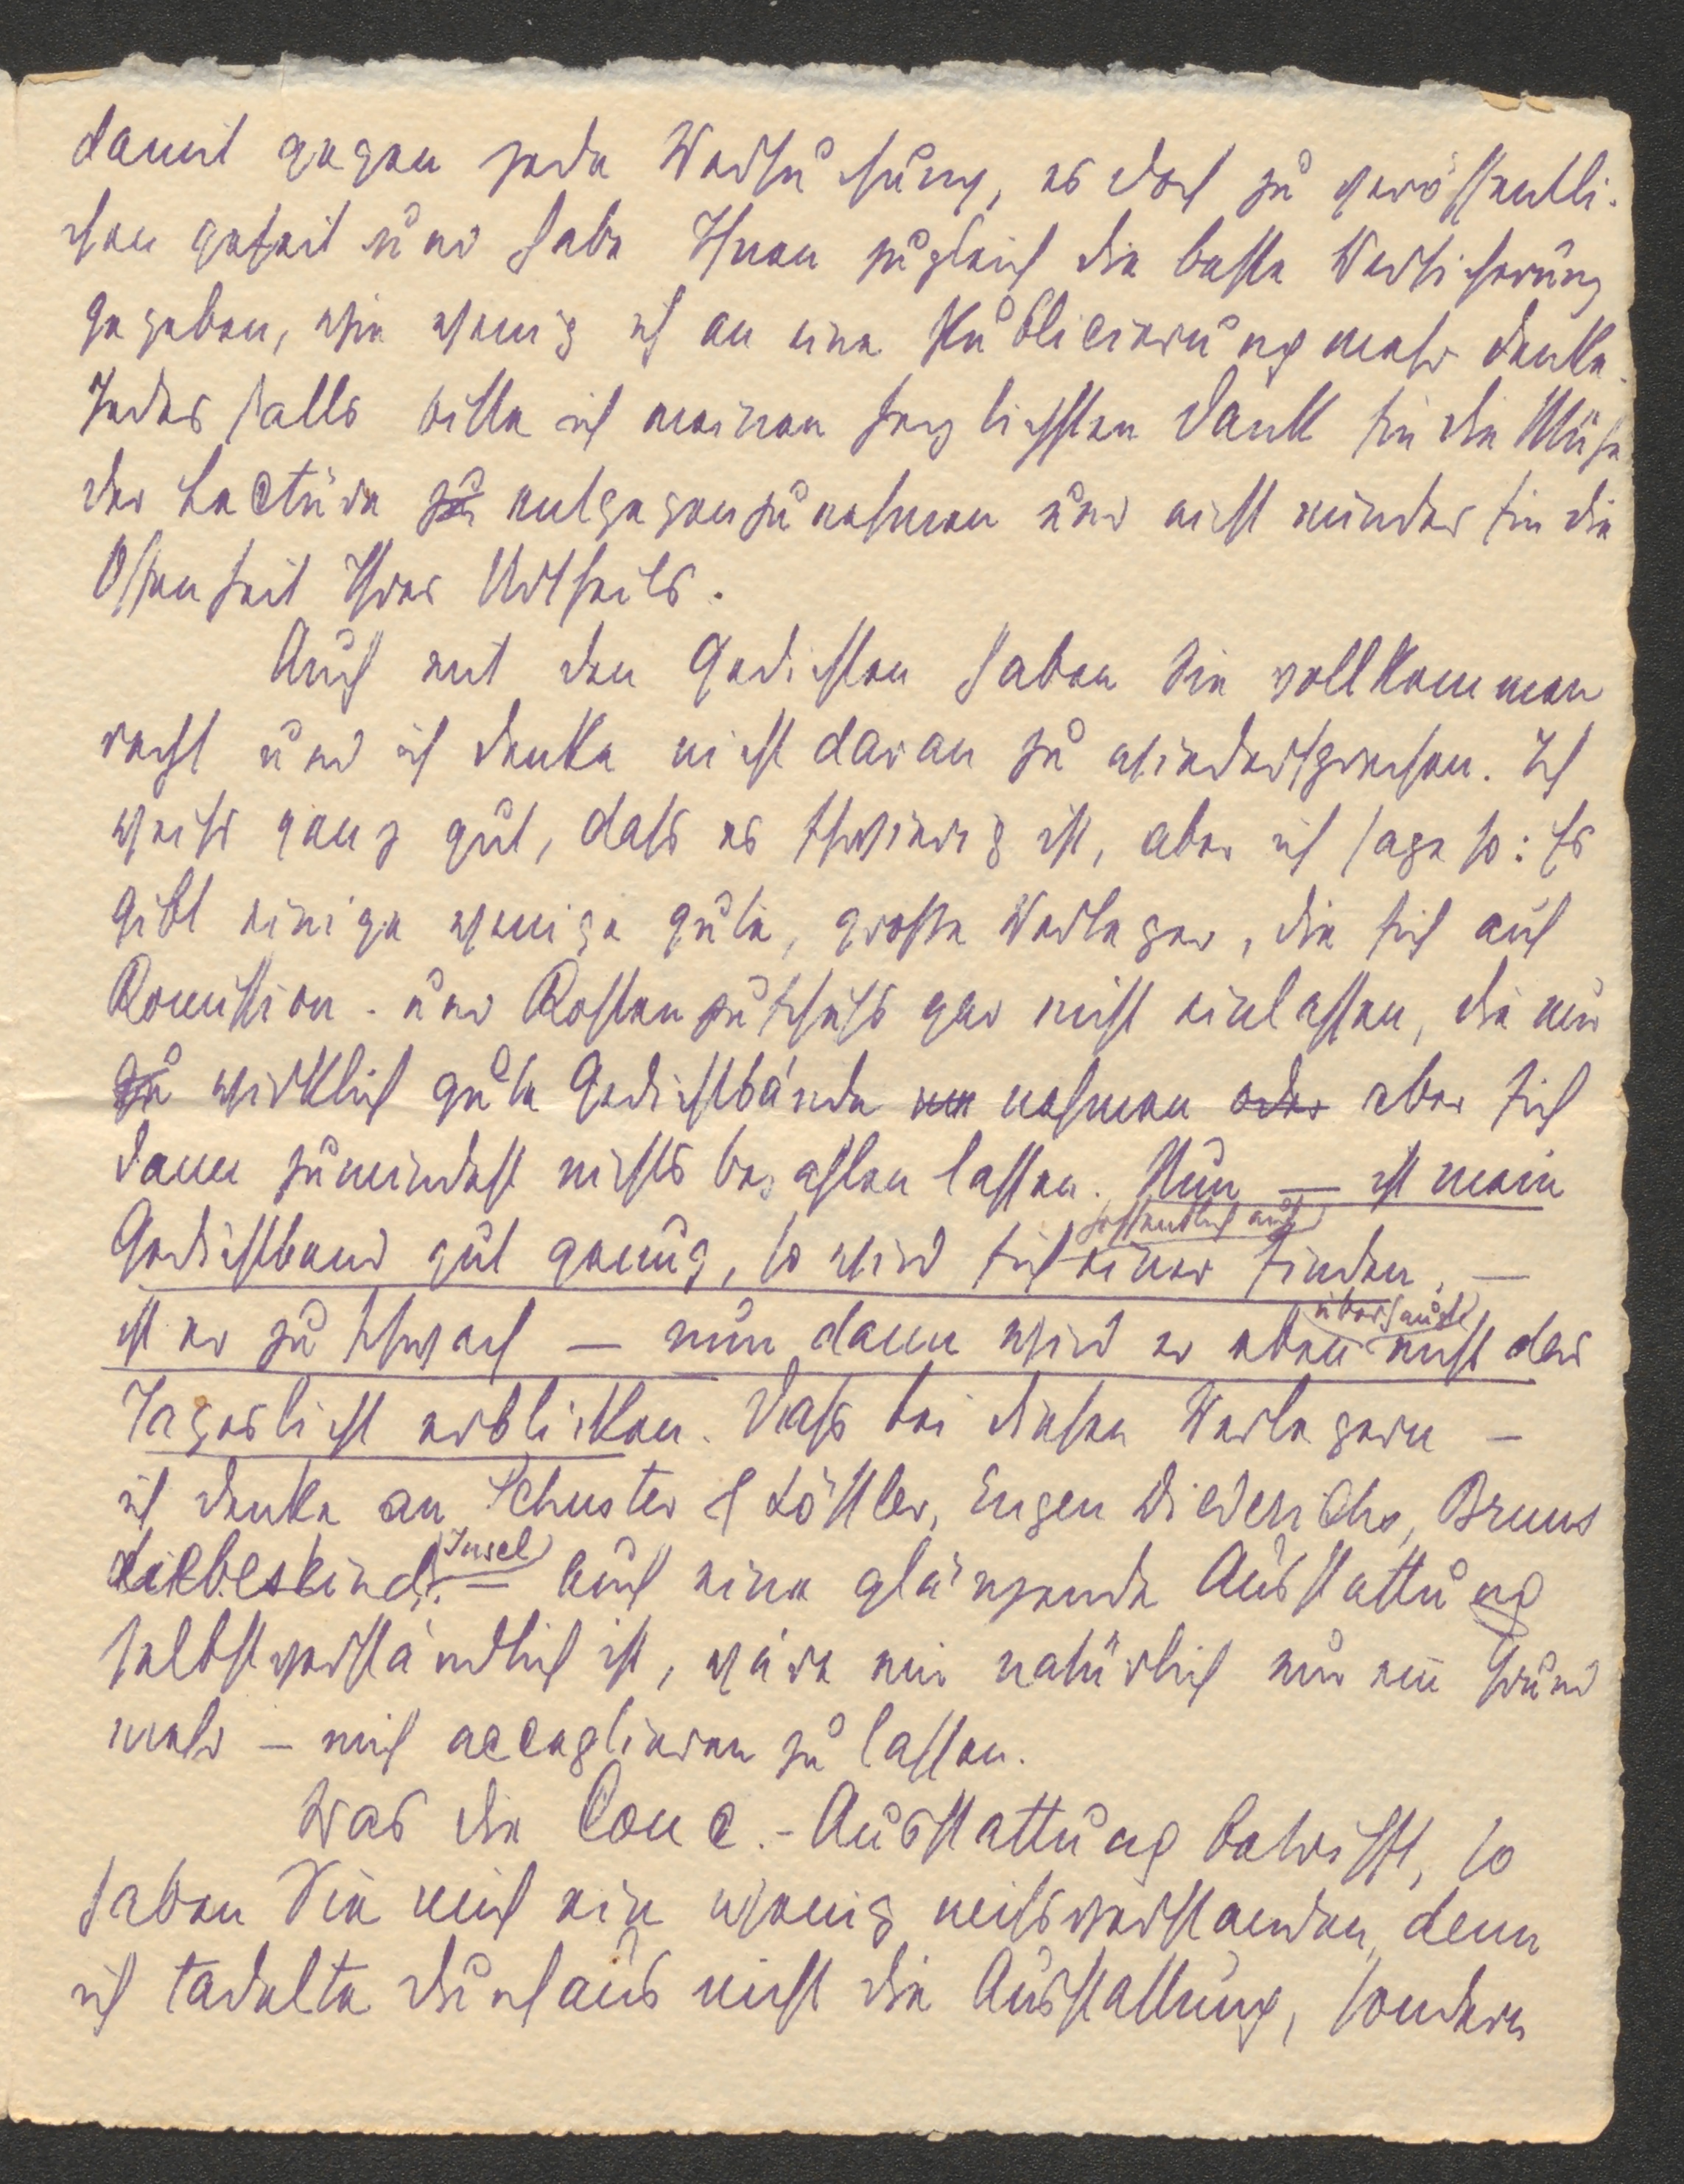 damit gegen jede Versuchung, es doch zu veröffentli-
chen gefeit und habe Ihnen zugleich die beste Versicherung
gegeben, wie wenig ich an eine Publicierung mehr denke.
Jedesfalls bitte ich meinen herzlichsten Dank für die Mühe
der Lectüre zu entgegenzunehmen und nicht minder für die
Offenheit Ihres Urtheils.
Auch mit den Gedichten haben Sie vollkommen
recht und ich denke nicht daran zu wiedersprechen. Ich
weiss ganz gut, dass es schwierig ist, aber ich sage so: Es
gibt einige wenige gute, grosse Verleger, die sich auf
Komission- und Kostenzuschuss gar nicht einlassen, die nur
gu wirklich gute Gedichtbände nehmen oder aber sich
dann zumindest nichts bezahlen lassen. Nun — ist mein
hoffentlich auch
Gedichtband gut genug, so wird sich einer finden, —
überhaupt
ist er zu schwach — nun dann wird er eben nicht das
Tageslicht erblicken. Dass bei diesen Verlegern —
ich denke an Schuster & Löffler, Eugen Diederichs, Bruns
Insel
Liebeskind. — auch eine glänzende Ausstattung
selbstverständlich ist, wäre mir natürlich nur ein Grund
mehr — mich acceptieren zu lassen.
Was die Conc.-Ausstattung betrifft, so
haben Sie mich ein wenig missverstanden, denn
ich tadelte durchaus nicht die Ausstattung, sondern